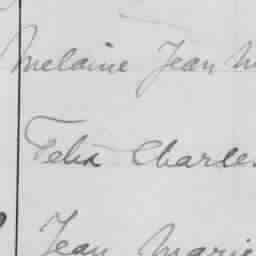 Melaine Jean M
Felix Charles
Jean Marie